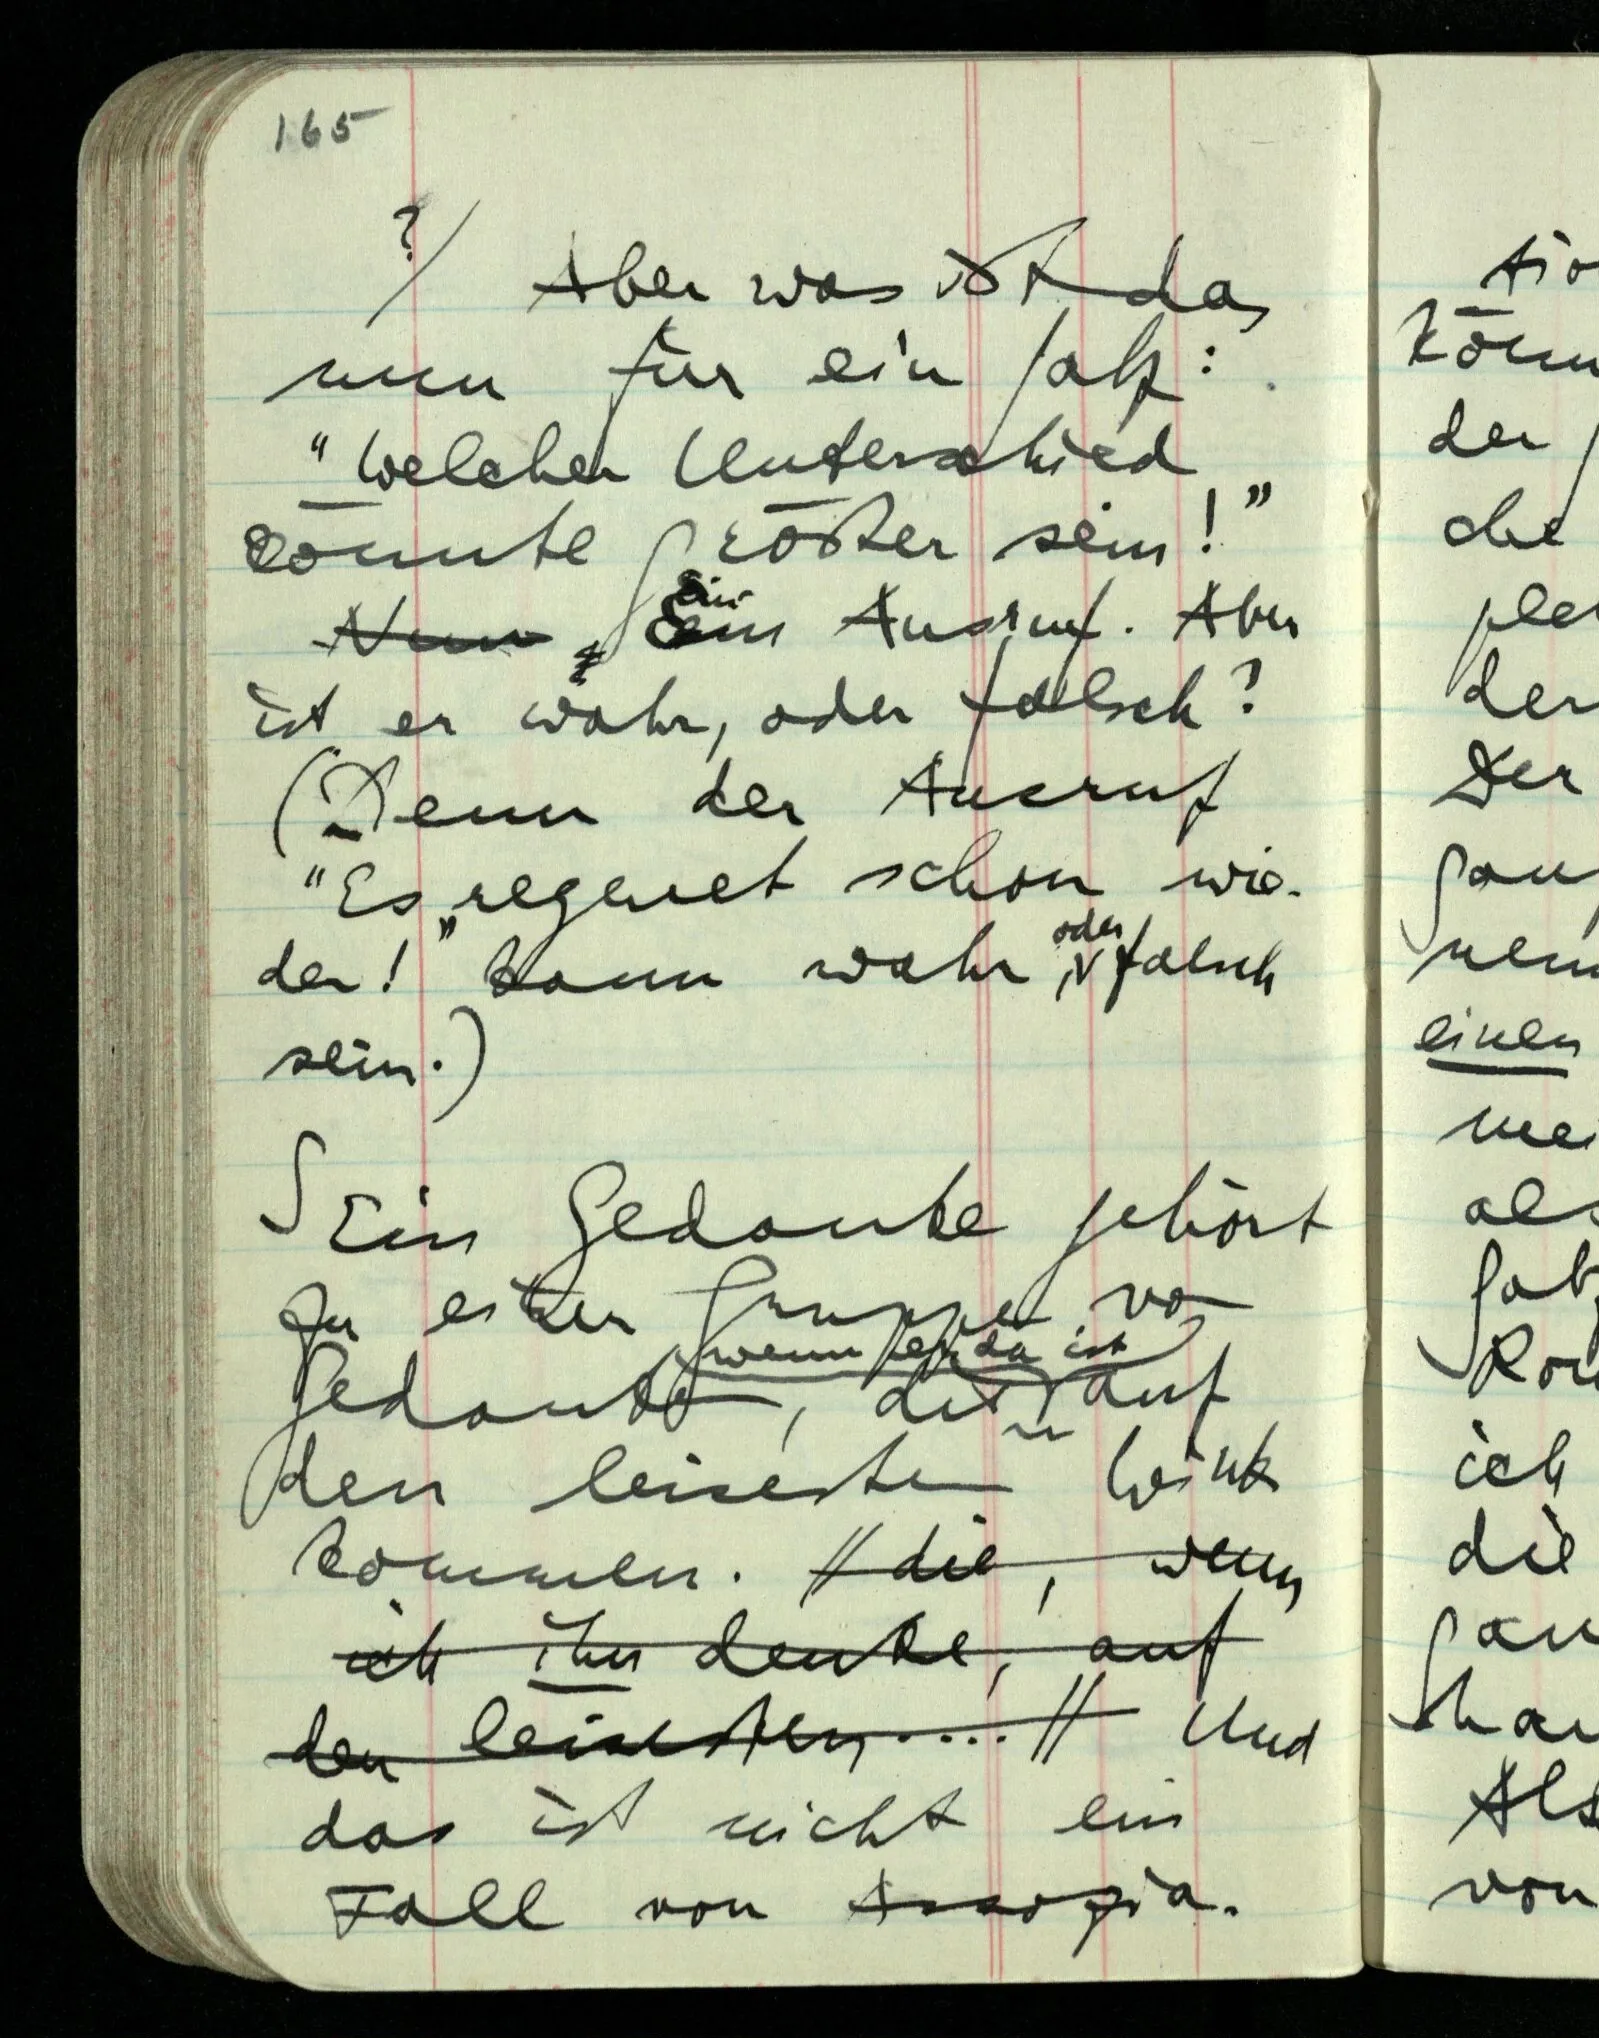 165
?/ Aber was ist das
nun für ein Satz:
"Welcher Unterschied
könnte größer sein!"
Nun, Ein Ausruf. Aber
ist er wahr, oder falsch?
(Denn der Ausruf
"Es regnet schon wie-
der!" kann wahr, oder falsch
sein.)
S Ein Gedanke gehört
zu einer Gruppe von
Gedanken, die, wenn er da ist, auf
den leisesten Wink
kommen. // die, wenn
ich ihn denke, auf
den leisesten .... // Und
das ist nicht ein
Fall von Assozia-
tio
könn
der
che
der
Der
einen
mei
als
ich
die
von